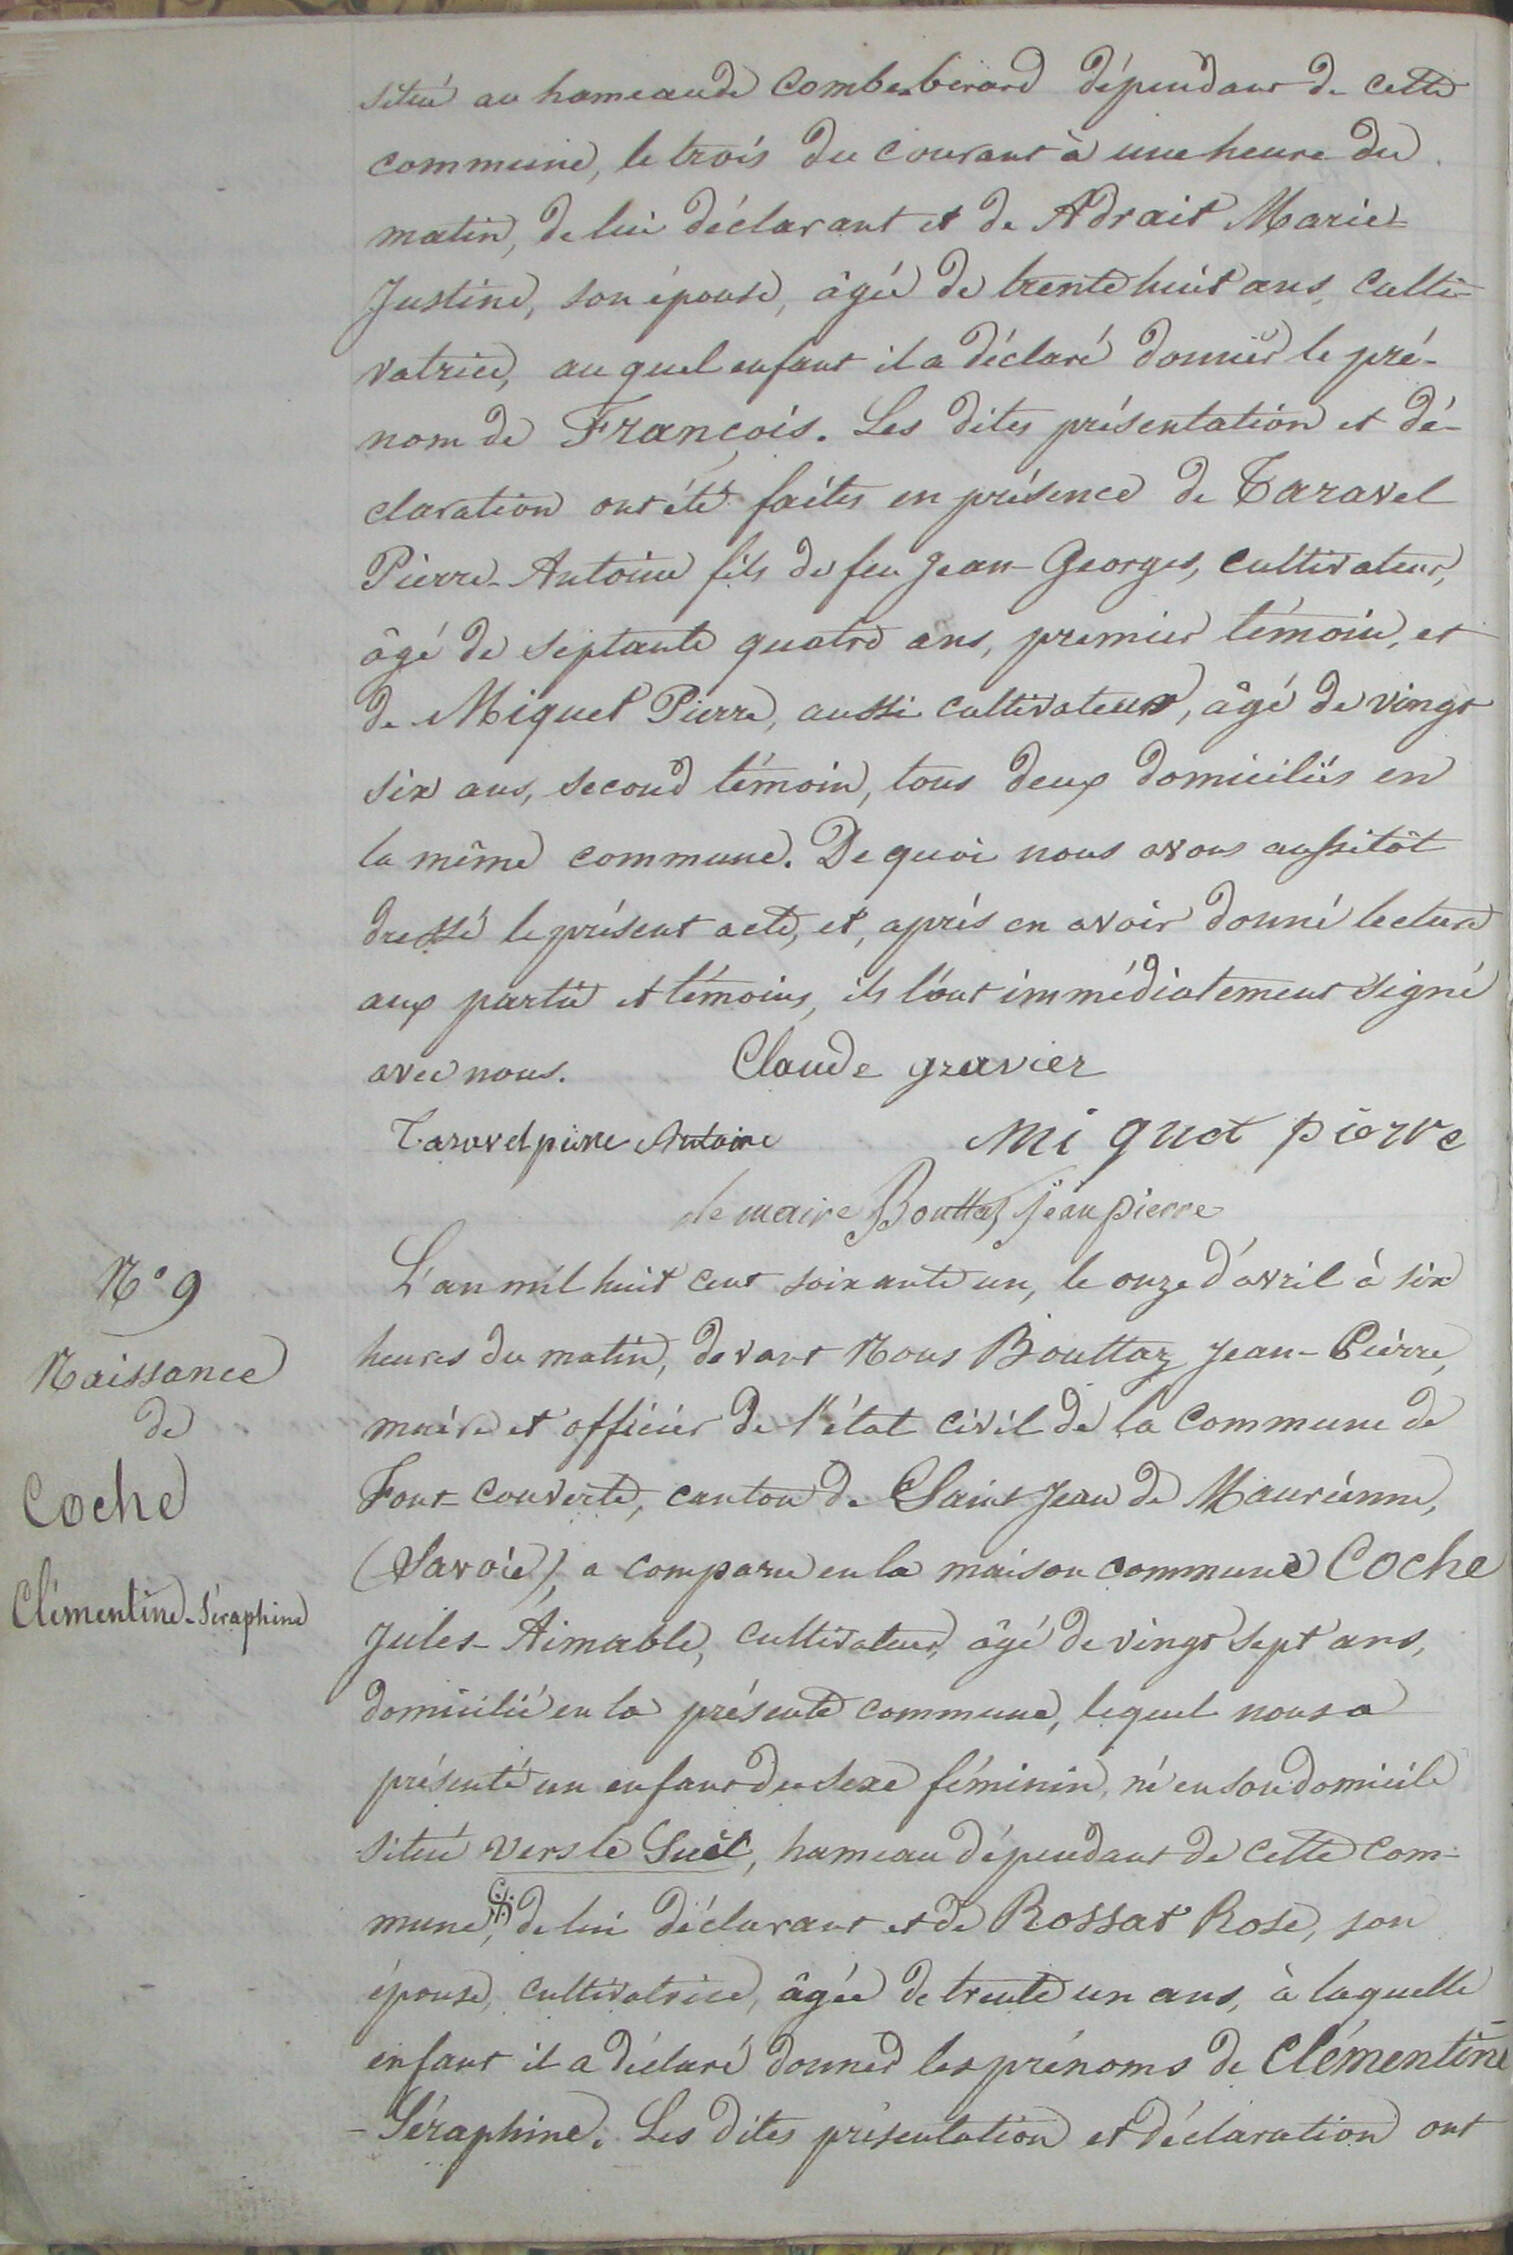 situé au hameau de Combe bérard dépendant de cette
commune, le trois du courant à une heure du
matin, de lui déclarant et de Adrait Marie
Justine, son épouse, âgée de trente huit ans, culti-
vatrice, au quel enfant il a déclaré donner le pré-
nom de François. Les dites présentation et dé-
claration ont été faites en présence de Taravel
Pierre-Antoine fils de feu Jean-Georges, cultivateur,
âgé de septante quatre ans, premier témoin, et
de Miquet Pierre, aussi cultivateur, âgé de vingt
six ans, second témoin, tous deux domiciliés en
la même commune. De quoi nous avons aussitôt
dressé le présent acte, et, après en avoir donné lecture
aux partie et témoins, ils l'ont immédiatement signé
avec nous. Claude gravier
Taravel pierre Antoine miquet pierre
le maire Bouttaz jean pierre
N° 9
Naissance
de
Coche
Clémentine-Séraphine
L'an mil huit cent soixante un, le onze d'avril à six
heures du matin, devant Nous Bouttaz Jean-Pierre,
maire et officier de l'état civil de la commune de
Font-couverte, canton de Saint Jean de Maurienne,
(Savoie), a comparu en la maison commune Coche
Jules-Aimable, cultivateur, âgé de vingt sept ans,
domicilié en la présente commune, lequel nous a
présenté un enfant du sexe féminin, né en son domicile
situé vers le Suêt, hameau dépendant de cette com-
mune, de lui déclarant et de Rossat Rose, son
épouse, cultivatrice, âgée de trente un ans, à laquelle
enfant il a déclaré donner les prénoms de Clémentine
-Séraphine. Les dites présentation et déclaration ont